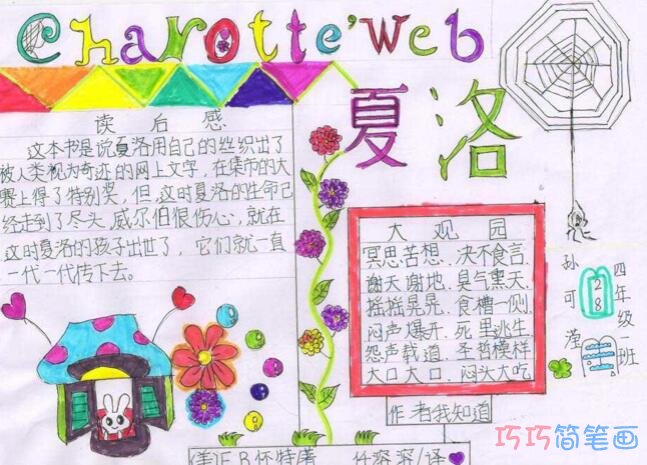 Charotte'web
夏洛
读后感
这本书是说夏洛用自己的丝织出了
被人类视为奇迹的网上文字,在集市的大
赛上得了特别奖,但,这时夏洛的生命已
经走到了尽头,威尔伯很伤心,就在
这时夏洛的孩子出世了,它们就一直
一代一代传下去。
大观园
冥思苦想、决不食言、
谢天谢地、臭气熏天、
摇摇晃晃、食槽一侧、
闷声爆开、死里逃生、
怨声载道、圣哲模样
大口大口、闷头大吃
作者我知道
(美)E.B.怀特/著 任溶溶/译
四年级一班
28
孙可滢
巧巧简笔画